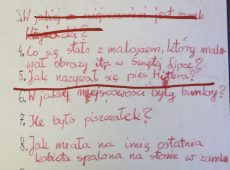 3. W jakiej miejscowości jest zamek
4. Co się stało z malarzem, który malo-
wał obrazy itp. w Świętej Lipce?
5. Jak nazywał się pies Hitlera?
6. W jakiej miejscowości były bunkry?
7. Ile było piszczałek?
8. Jak miała na imię ostatnia
kobieta spalona na stosie w zamku